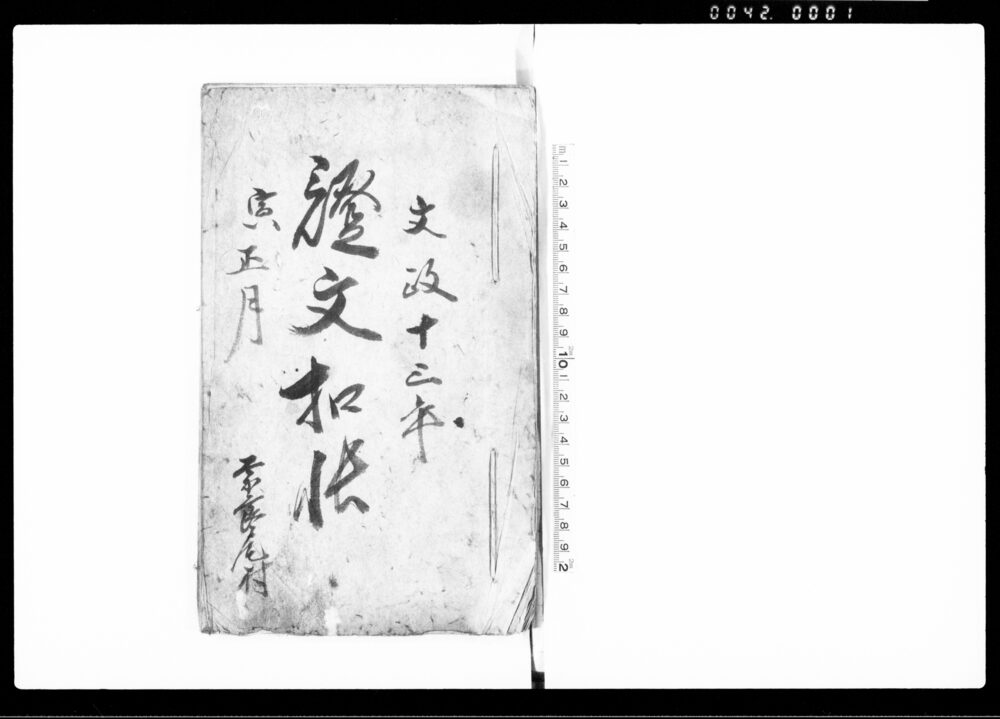 0042. 0001
文政十三年
證文扣帳
寅正月
奈良尾村
m 1 2 3 4 5 6 7 8 9 10 1 2 3 4 5 6 7 8 9 2